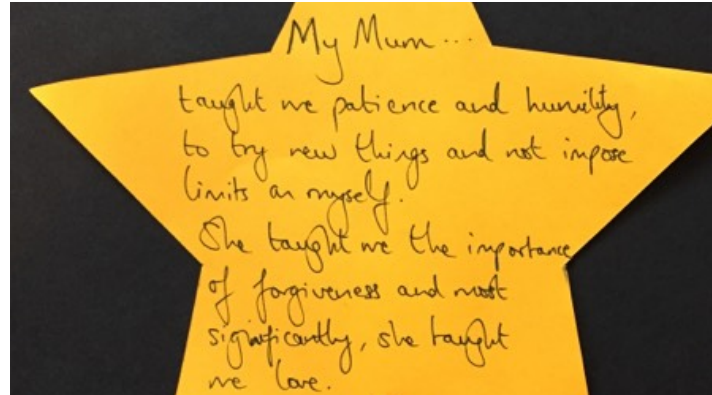 My Mum...
taught me patience and humility,
to try new things and not impose
limits on myself.
She taught me the importance
of forgiveness and most
significantly, she taught
me love.